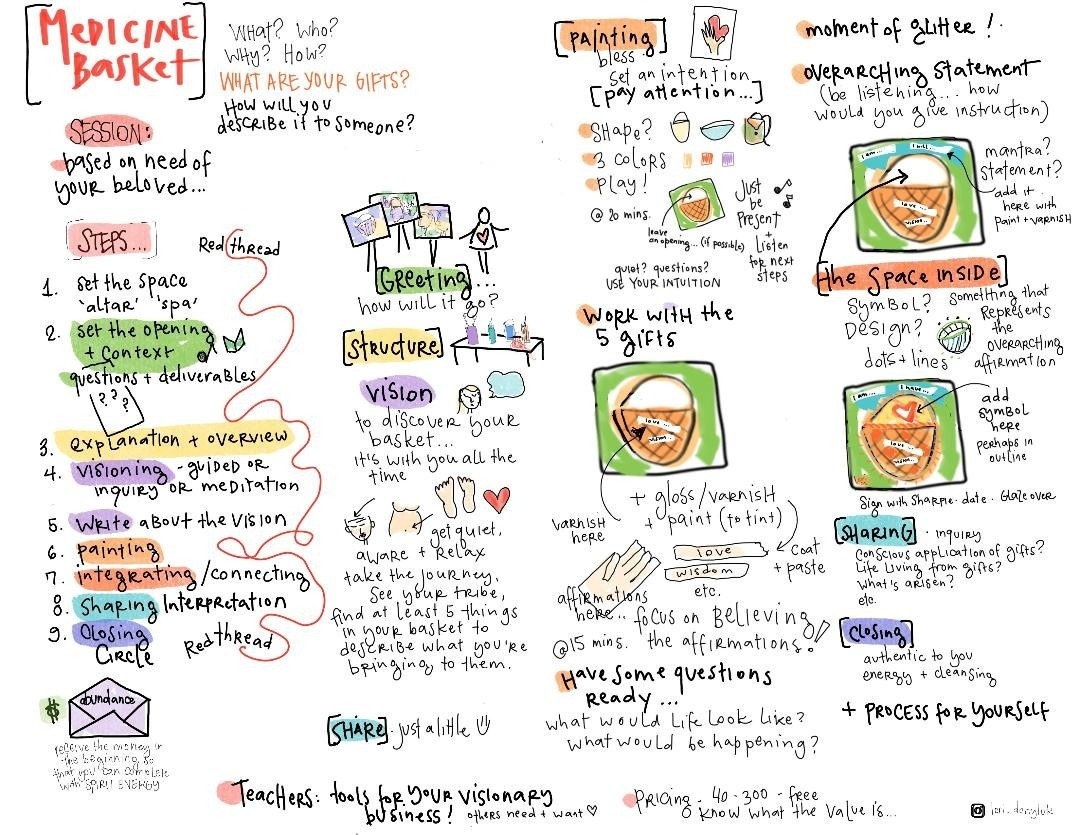 MEDICINE
BASKET
WHAT? WHO?
WHY? HOW?
WHAT ARE YOUR GIFTS?
HOW WILL YOU
DESCRIBE IT TO SOMEONE?
SESSION:
based on need of
your beloved...
STEPS...
Red thread
1. set the space
'altar' 'spa'
2. set the opening
+ context
questions + deliverables
? ? ?
3. explanation + overview
4. visioning - guided or
inquiry or meditation
5. Write about the vision
6. painting
7. integrating/connecting
8. Sharing Interpretation
9. Closing
Circle
Red thread
$
abundance
receive the money in
the beginning, so
that you can complete
with SPIRIT ENERGY
Greeting...
how will it go?
Structure
Vision
to discover your
basket...
it's with you all the
time
get quiet,
aware + Relax
take the journey,
See your tribe,
find at least 5 things
in your basket to
describe what you're
bringing to them.
SHARE - just a little
Painting
bless
set an intention
[pay attention...]
Shape?
3 colors
play!
@ 20 mins.
leave
an opening... (if possible)
Just
be
Present
+
Listen
for next
steps
quiet? questions?
USE YOUR INTUITION
Work with the
5 gifts
love...
vision...
varnish
here
+ gloss/varnish
+ paint (to tint)
love
wisdom
etc.
coat
+ paste
affirmations
here...
@ 15 mins.
focus on Believing
the affirmations!
Have some questions
ready...
what would life look like?
what would be happening?
moment of glitter!
overarching statement
(be listening... how
would you give instruction)
I am...
I will...
love...
vision...
mantra?
statement?
add it
here with
paint + varnish
the space inside
Symbol?
Design?
dots + lines
something that
Represents
the
overarching
affirmation
I am...
I have...
love...
vision...
add
symbol
here
perhaps in
outline
Sign with Sharpie · date · Glaze over
SHARING · inquiry
conscious application of gifts?
Life Living from gifts?
what's arisen?
etc.
Closing
authentic to you
energy + cleansing
+ process for yourself
Teachers: tools for your visionary
business! others need + want
Pricing - 40 - 300 - free
know what the value is...